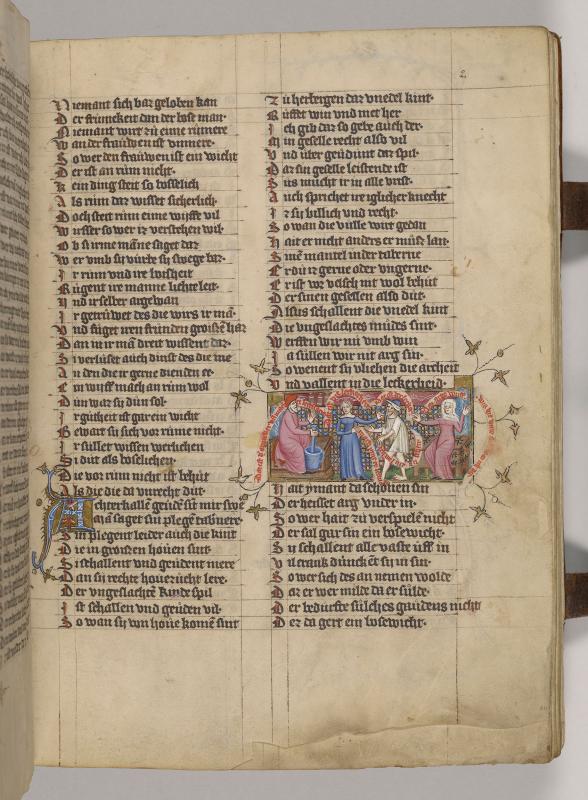 2
Niemant sich baz geloben kan
Der trunckeit dan der bose man
Niemant wirt zů eime rümere
Wan der frauwen ist vnmere
So wer den frauwen ist ein wicht
Der ist an rům nicht
Kein ding steit so bosselich
Als rům daz wisset sicherlich
Doch steit rům eime wyffe vil
Wirser so wer iz versten wil
Ob si irme manne saget daz
Wer vmb sy wirbt sy swege baz
Ir rům vnd ire boisheit
Růgent ire manne lichte leit
Vnd irselber argewan
Ir getruwet des die wirs ir man
Vnd füget iren frunden großen haz
Dan ir man dreit wissent daz
Si verluset auch dinst des die me
An den die ir gerne dienden e
Ein wyff mach an rům wol
Dům war sy dům sol
Ir gůtheit ist gar ein wicht
Bewart sy sich vor růme nicht
Ir sullet wissen werlichen
Si důt als boselichen
Die vor rům nicht ist behůt
Als die die da vnrecht důt
Achter schallen geůdē sit mir swe
Man saget sin plegē tabnere
Sin plegent leider auch die kint
Die in großen hoüen sint
Si schallent vnd geudent mere
Dan sy rechte houezucht lere
Der vngeslachtē kinde spil
Ist schallen vnd geuden vil
So wan sy von houe komē sint
Zů herbergen daz vnedel kint
Růffet win vnd met her
Ich gib daz so gebe auch der
Min geselle recht also vil
Vnd uber geudunt daz spil
Daz sin geselle leistende ist
Sus můcht ir in alle vrist
Auch sprichet ire iglicher knecht
Iz sy billich vnd recht
So wan die vülle wirt getan
Hait er nicht anders er můß lan
Sinē mantel in der taberne
Er dů iz gerne oder vngerne
Er ist vor welsch nit wol behůt
Der sinen gesellen also důt
Alsus schallent die vnedel kint
Die vngeslachtes můdes sint
Werffen wir mi vmb win
Ja sullen wir nit arg sin
So wenent sy vliehen die archeit
Vnd vallent in die leckerheid
Hait ymant da schonen sin
Der heisset arg vnder in
So wer hait zu verspielē nicht
Der sal gar sin ein bosewicht
Sy schallent alle vaste uff in
Vil cranck duncket sy ir sin
So wer sich des an nemen wolde
Daz er wer milde da er sulde
Der bedurfte sulches gaudens nicht
Der ez da gert ein bosewicht